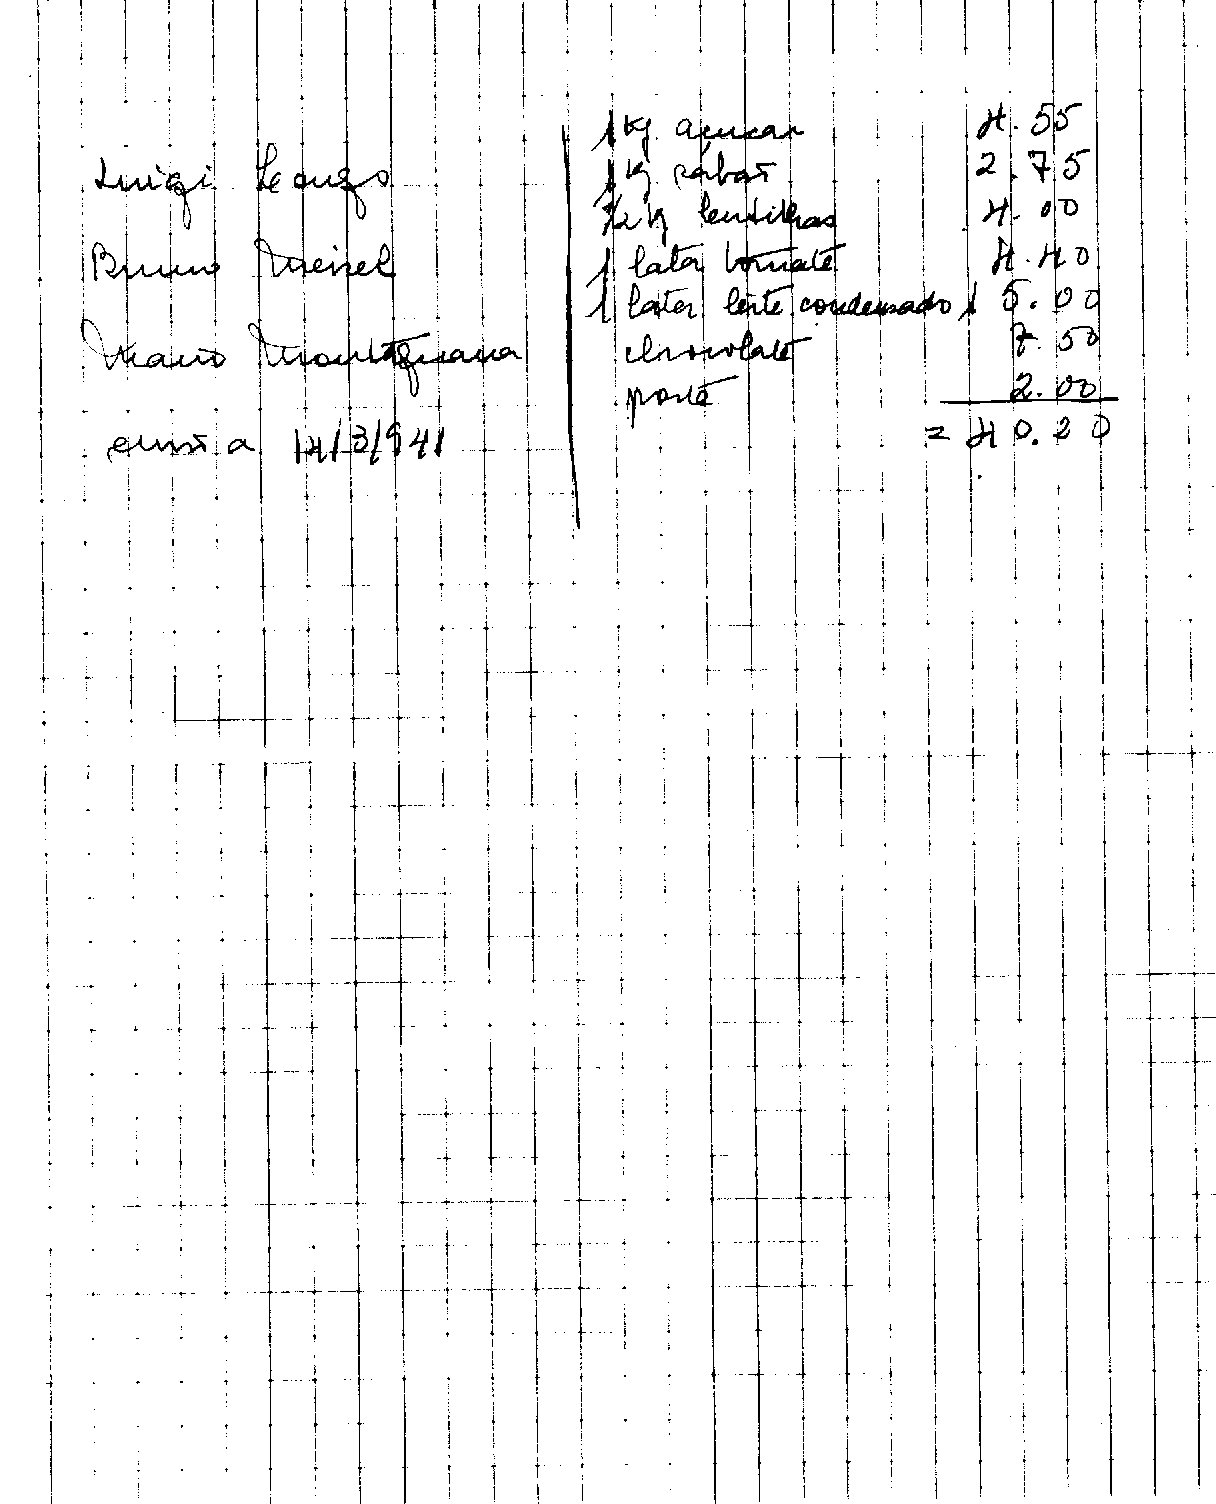 Luigi Longo
Bruno
Mario Montagnana
a 14/3/941
1 Kg açucar 4.55
1 Kg sabão 2.75
1/2 Kg lentilhas 4.00
1 lata tomate 4.40
1 lata leite condensado 5.00
chocolate 7.50
porte 2.00
= 40.20